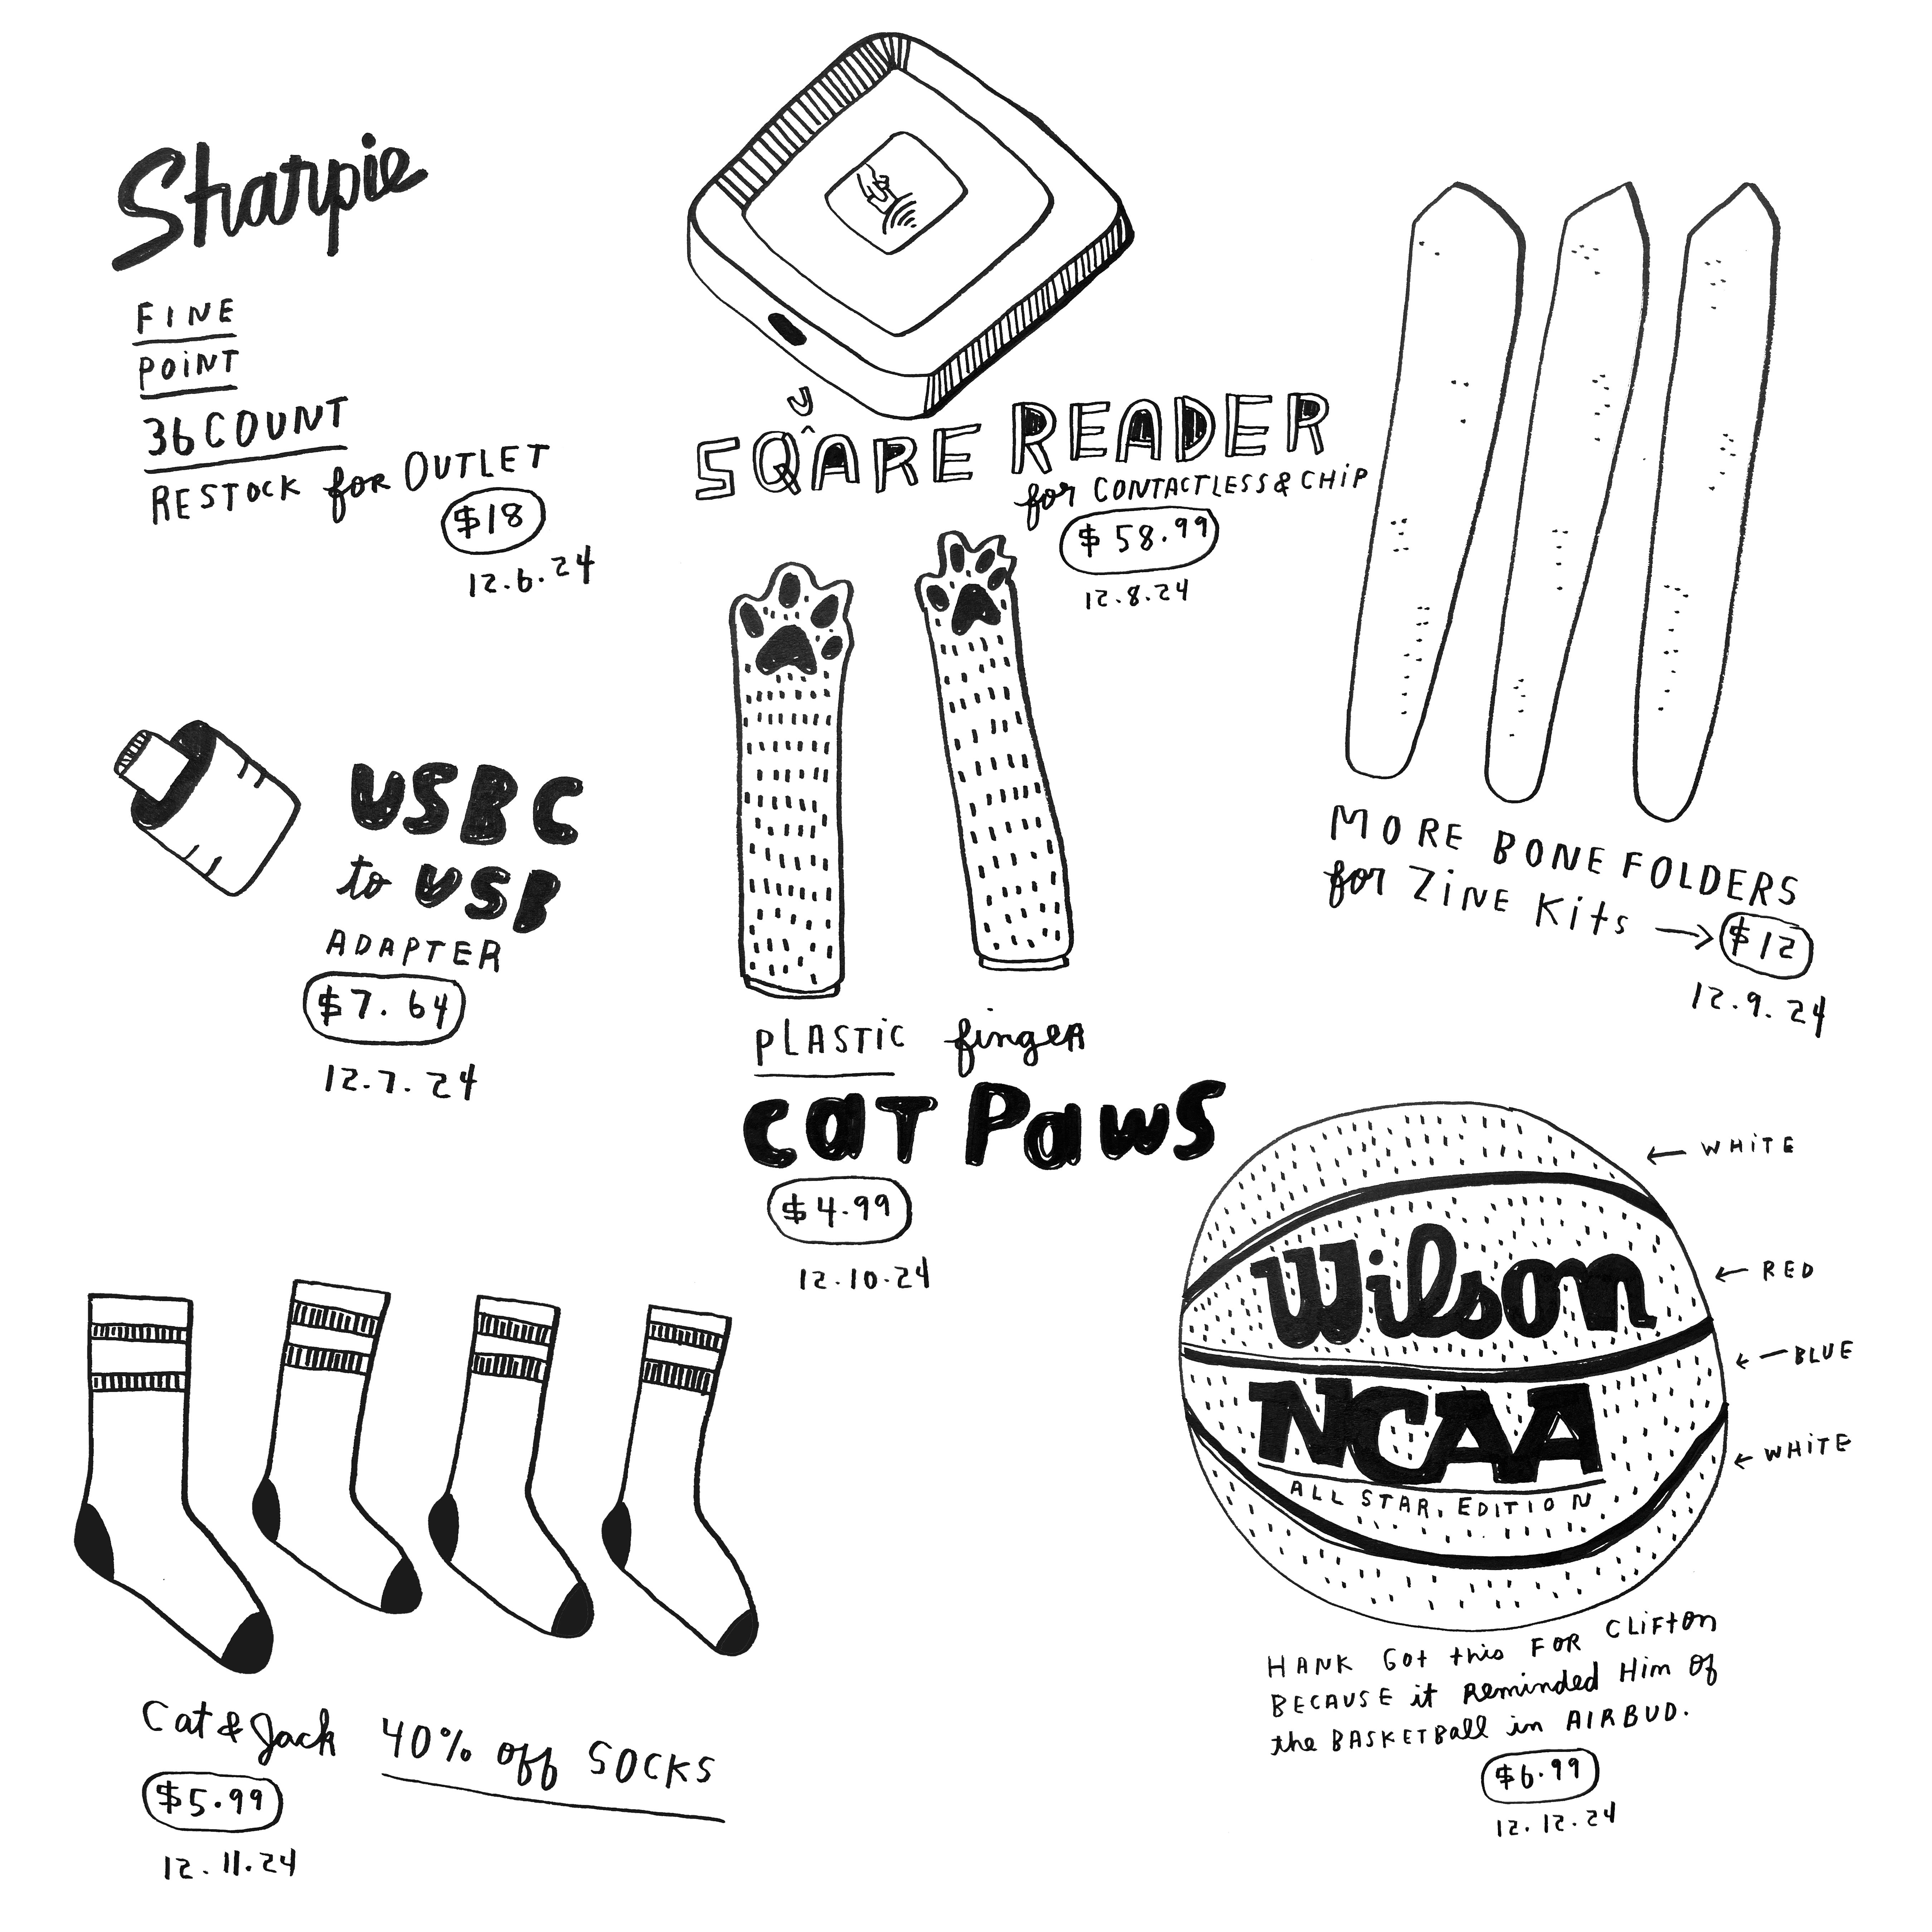 Sharpie
FINE
POINT
36 COUNT
RESTOCK for OUTLET
$18
12.6.24
SQUARE READER
for CONTACTLESS & CHIP
$58.99
12.8.24
MORE BONE FOLDERS
for ZINE Kits → $12
12.9.24
USBC
to USB
ADAPTER
$7.64
12.7.24
PLASTIC finger
CAT PAWS
$4.99
12.10.24
Wilson
NCAA
ALL STAR EDITION
← WHITE
← RED
← BLUE
← WHITE
HANK Got this FOR CLIFTON
BECAUSE it Reminded Him OF
the BASKETBALL in AIRBUD.
$6.99
12.12.24
Cat & Jack 40% off SOCKS
$5.99
12.11.24